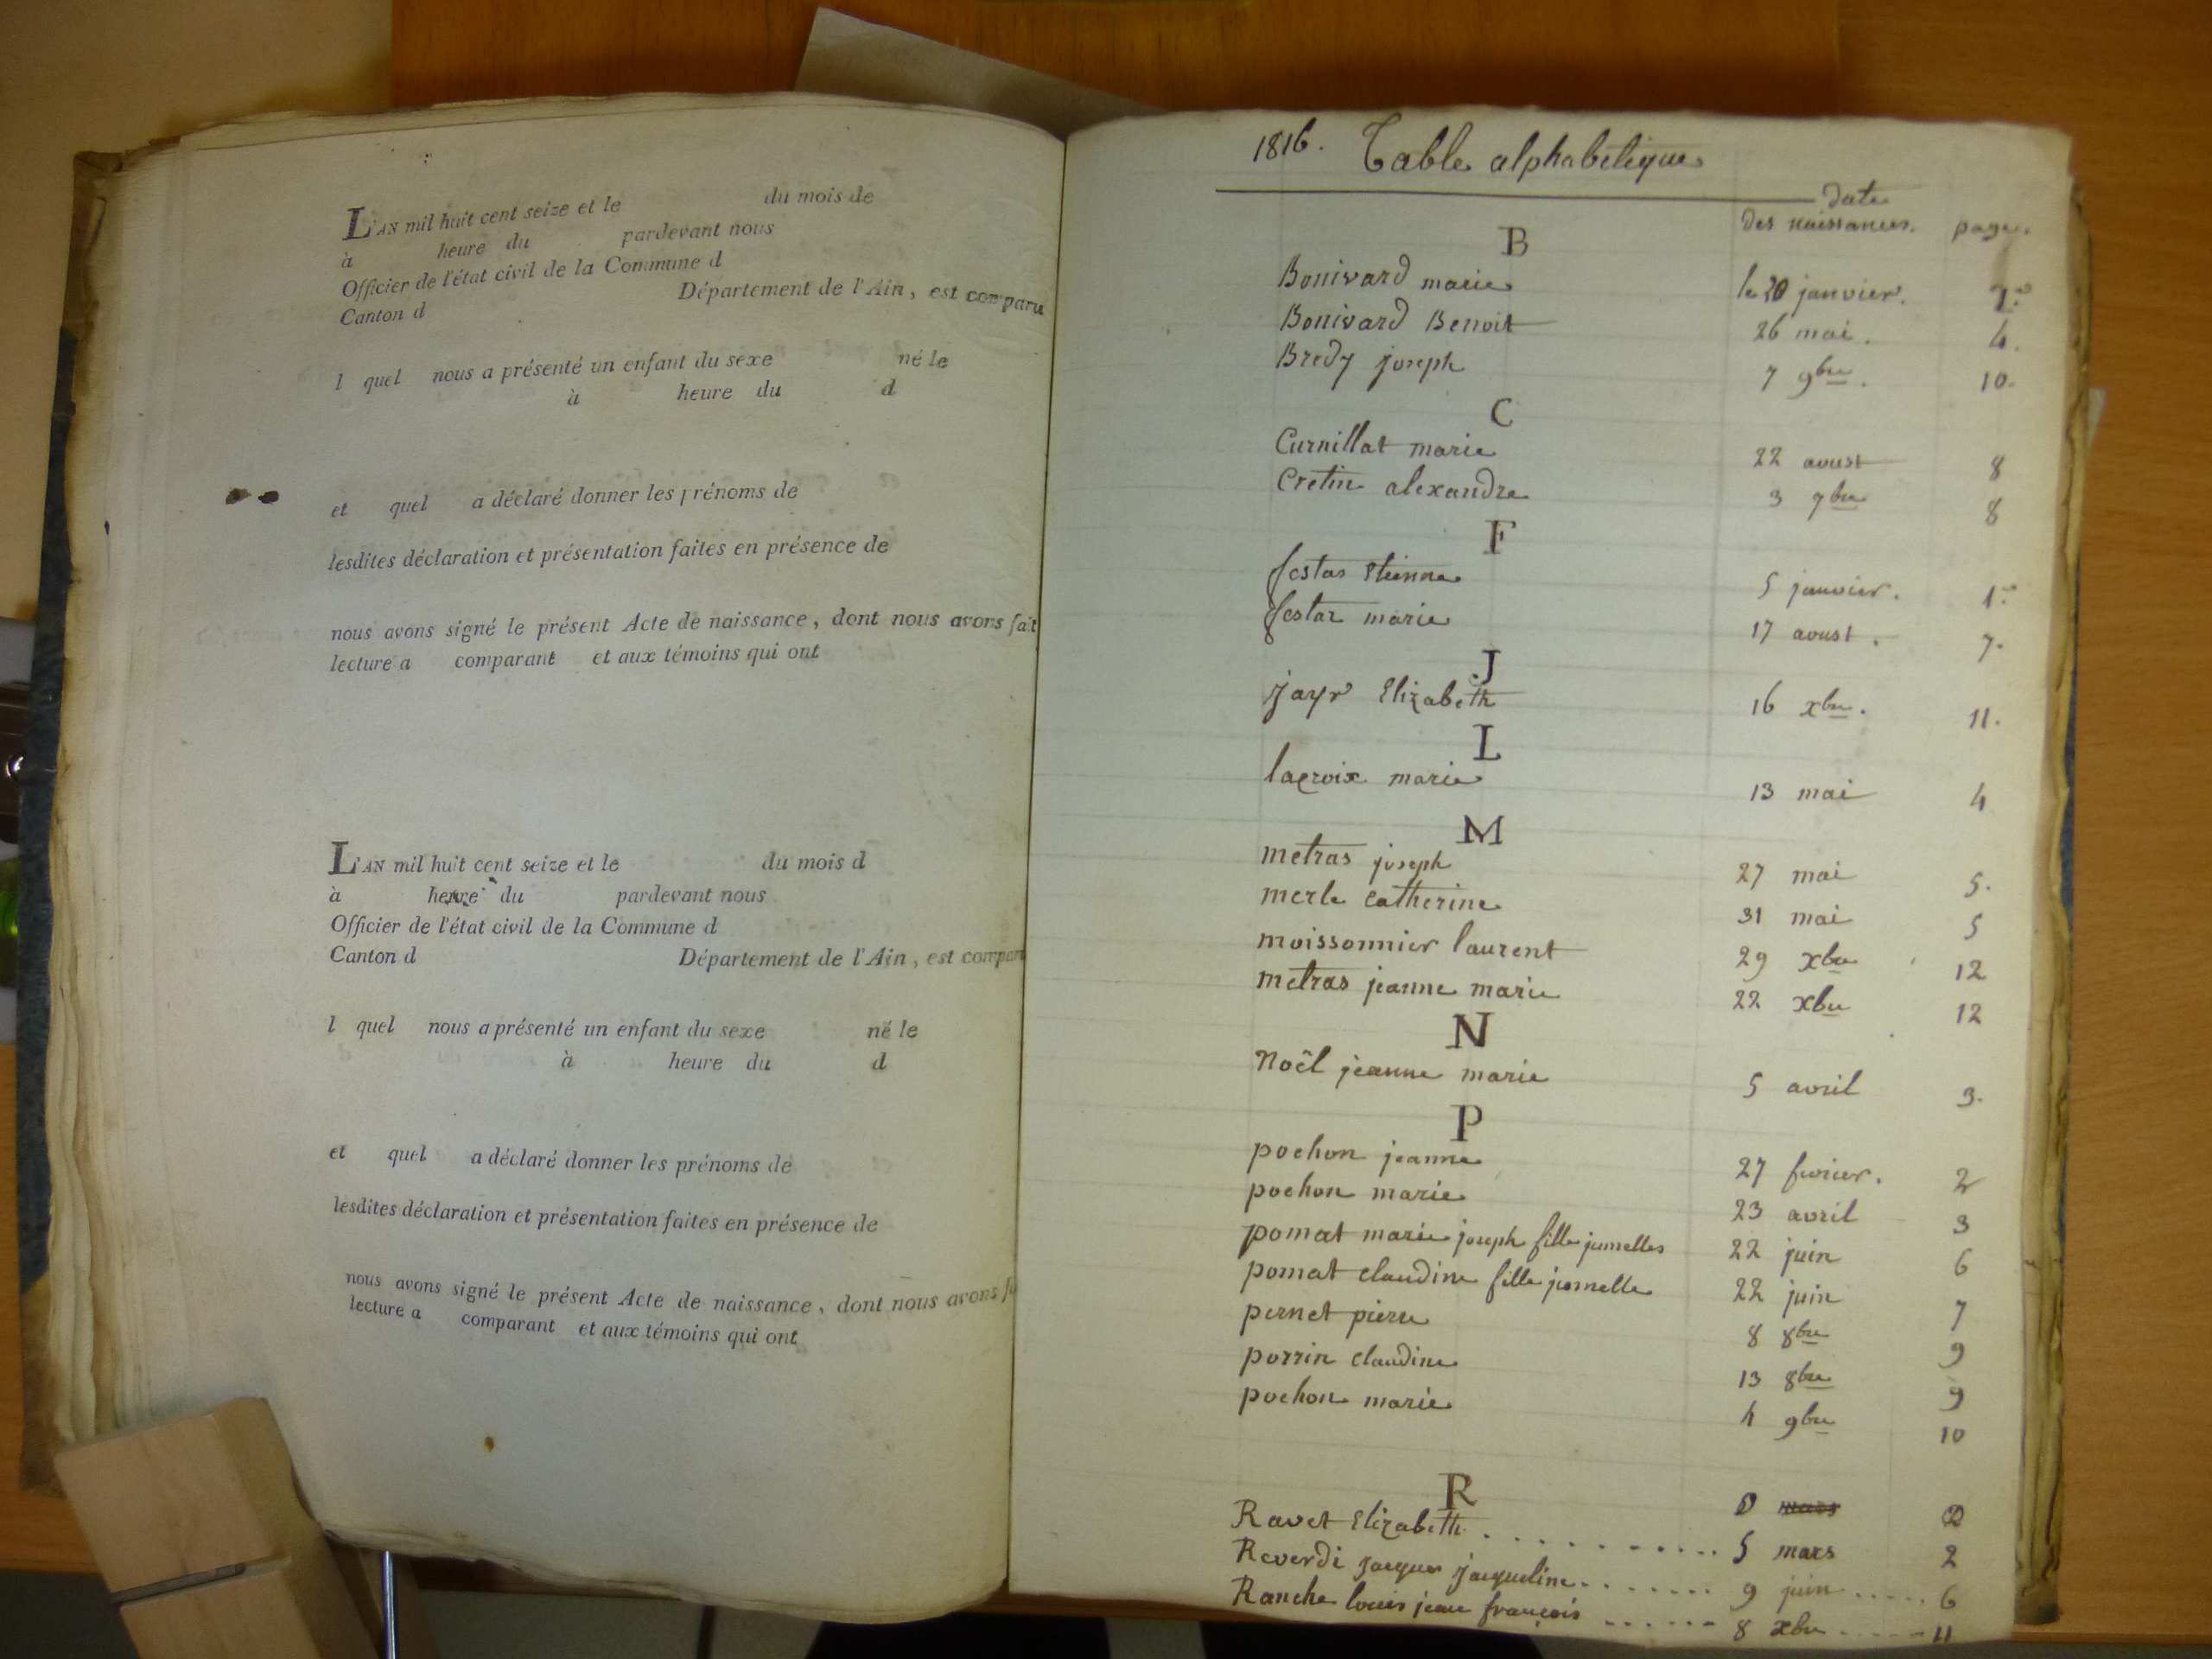 L'AN mil huit cent seize et le du mois de
à heure du pardevant nous
Officier de l'état civil de la Commune d
Canton d Département de l'Ain, est comparu
l quel nous a présenté un enfant du sexe né le
à heure du d
et quel a déclaré donner les prénoms de
lesdites déclaration et présentation faites en présence de
nous avons signé le présent Acte de naissance, dont nous avons fait
lecture a comparant et aux témoins qui ont
L'AN mil huit cent seize et le du mois d
à heure du pardevant nous
Officier de l'état civil de la Commune d
Canton d Département de l'Ain, est compar
l quel nous a présenté un enfant du sexe né le
à heure du d
et quel a déclaré donner les prénoms de
lesdites déclaration et présentation faites en présence de
nous avons signé le présent Acte de naissance, dont nous avons
lecture a comparant et aux témoins qui ont
1816. Table alphabetique
date
des naissances. pages.
B
Bonivard marie le 20 janvier. 1.er
Bonivard Benoit 26 mai. 4.
Bredy joseph 7 9bre. 10.
C
Curnillat marie 22 aoust 8
Cretin alexandre 3 7bre 8
F
festas Etienne 5 janvier. 1.er
festaz marie 17 aoust. 7.
J
jayr Elizabeth 16 xbre. 11.
L
lacroix marie 13 mai 4
M
metras joseph 27 mai 5.
merle catherine 31 mai 5
moissonnier laurent 29 xbre 12
metras jeanne marie 22 xbre 12
N
Noël jeanne marie 5 avril 3.
P
pochon jeanne 27 fevrier. 2
pochon marie 23 avril 3
pomat marie joseph fille jumelles 22 juin 6
pomat claudine fille jumelle 22 juin 7
pernet pierre 8 8bre 9
perrin claudine 13 8bre 9
pochon marie 4 9bre 10
R
mars 2
Ravet Elizabeth 5 mars 2
Reverdi jacques jacqueline 9 juin 6
Ranche louis jean françois 8 xbre 11